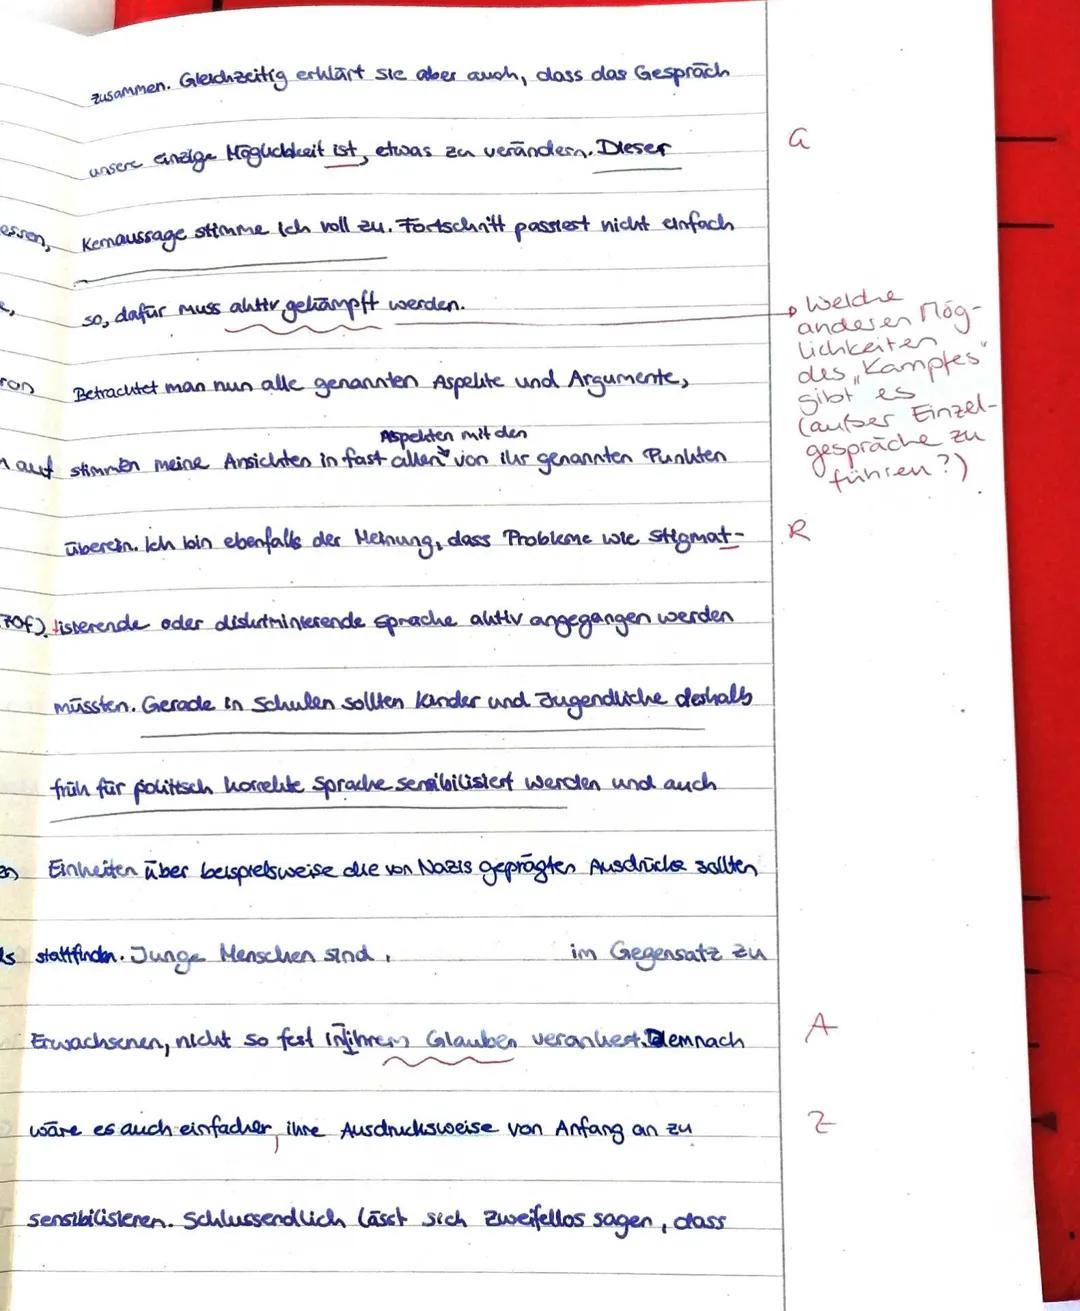 zusammen. Gleichzeitig erklärt sie aber auch, dass das Gespräch
unsere einzige Möglichkeit ist, etwas zu verändern. Dieser
G
Kernaussage stimme ich voll zu. Fortschritt passiert nicht einfach
so, dafür muss aktiv gekämpft werden.
Welche
anderen Mög-
lichkeiten
des „Kampfes"
gibt es
(außer Einzel-
gespräche zu
führen?)
Betrachtet man nun alle genannten Aspekte und Argumente,
Aspekten mit den
auf stimmen meine Ansichten in fast allen von ihr genannten Punkten
überein. Ich bin ebenfalls der Meinung, dass Probleme wie stigmat-
R
tisierende oder diskriminierende Sprache aktiv angegangen werden
müssten. Gerade in Schulen sollten Kinder und Jugendliche deshalb
früh für politisch korrekte Sprache sensibilisiert werden und auch
Einheiten über beispielsweise die von Nazis geprägten Ausdrücke sollten
stattfinden. Junge Menschen sind, im Gegensatz zu
Erwachsenen, nicht so fest in ihrem Glauben verankert. Demnach
A
wäre es auch einfacher, ihre Ausdrucksweise von Anfang an zu
Z
sensibilisieren. Schlussendlich lässt sich zweifellos sagen, dass